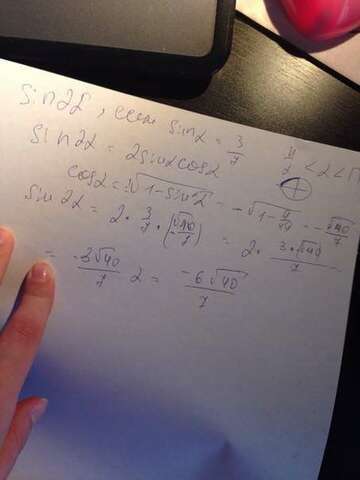 Sin2α, если sinα = 3/7 π/2 < α < π
Sin2α = 2sinαcosα
cosα = ±√(1-sin²α) = -√(1-9/49) = -√40/7
Sin2α = 2 · 3/7 · (-√40/7) = 2 · 3·√40/7
= -3√40/7 · 2 = -6√40/7